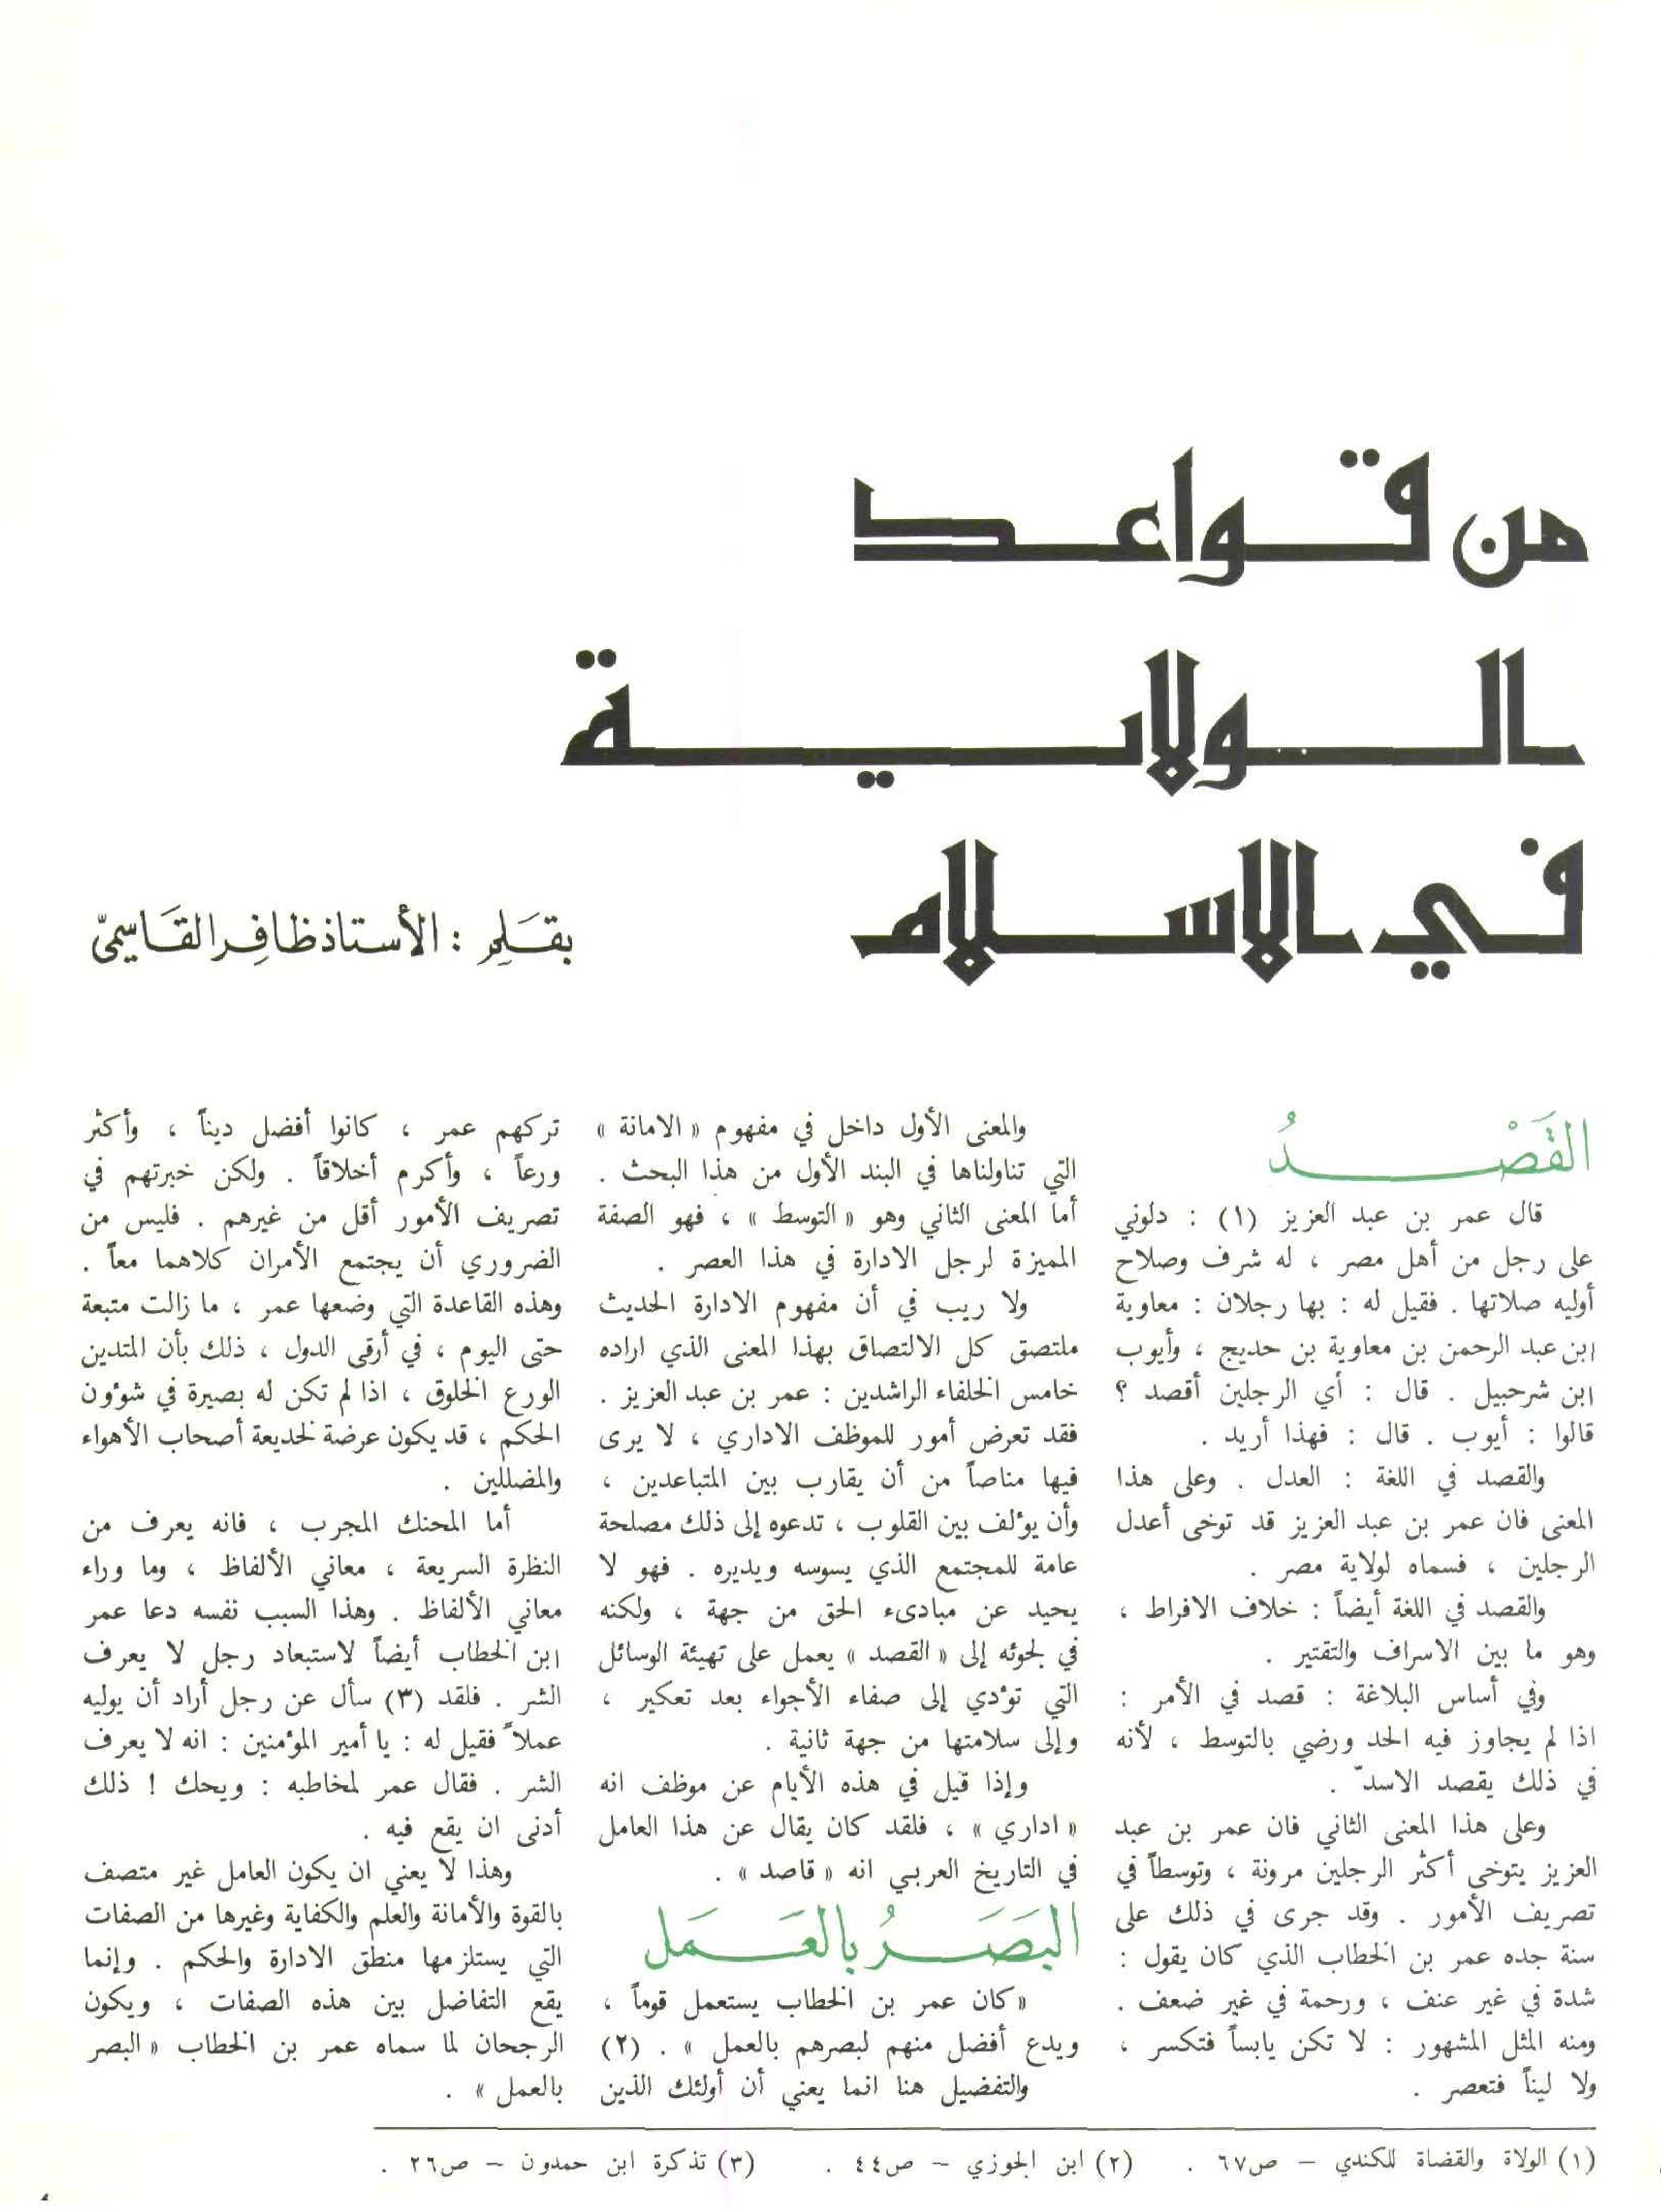 من قواعد
الولاية
في الاسلام
بقلم : الأستاذ ظافر القاسمي
القَصْدُ
قال عمر بن عبد العزيز (١) : دلوني
على رجل من أهل مصر ، له شرف وصلاح
أوليه صلاتها . فقيل له : بها رجلان : معاوية
ابن عبد الرحمن بن معاوية بن حديج ، وأيوب
ابن شرحبيل . قال : أي الرجلين أقصد ؟
قالوا : أيوب . قال : فهذا أريد .
والقصد في اللغة : العدل . وعلى هذا
المعنى فان عمر بن عبد العزيز قد توخى أعدل
الرجلين ، فسماه لولاية مصر .
والقصد في اللغة أيضاً : خلاف الافراط ،
وهو ما بين الاسراف والتقتير .
وفي أساس البلاغة : قصد في الأمر :
اذا لم يجاوز فيه الحد ورضي بالتوسط ، لأنه
في ذلك يقصد الاسدّ .
وعلى هذا المعنى الثاني فان عمر بن عبد
العزيز يتوخى أكثر الرجلين مرونة ، وتوسطاً في
تصريف الأمور . وقد جرى في ذلك على
سنة جده عمر بن الخطاب الذي كان يقول :
شدة في غير عنف ، ورحمة في غير ضعف .
ومنه المثل المشهور : لا تكن يابساً فتكسر ،
ولا ليناً فتعصر .
والمعنى الأول داخل في مفهوم « الامانة »
التي تناولناها في البند الأول من هذا البحث .
أما المعنى الثاني وهو « التوسط » ، فهو الصفة
المميزة لرجل الادارة في هذا العصر .
ولا ريب في أن مفهوم الادارة الحديث
ملتصق كل الالتصاق بهذا المعنى الذي اراده
خامس الخلفاء الراشدين : عمر بن عبد العزيز .
فقد تعرض أمور للموظف الاداري ، لا يرى
فيها مناصاً من أن يقارب بين المتباعدين ،
وأن يؤلف بين القلوب ، تدعوه إلى ذلك مصلحة
عامة للمجتمع الذي يسوسه ويديره . فهو لا
يحيد عن مبادىء الحق من جهة ، ولكنه
في لجوئه إلى « القصد » يعمل على تهيئة الوسائل
التي تؤدي إلى صفاء الأجواء بعد تعكير ،
وإلى سلامتها من جهة ثانية .
وإذا قيل في هذه الأيام عن موظف انه
« اداري » ، فلقد كان يقال عن هذا العامل
في التاريخ العربي انه « قاصد » .
البَصَرُ بالعَمَل
« كان عمر بن الخطاب يستعمل قوماً ،
ويدع أفضل منهم لبصرهم بالعمل » . (٢)
والتفضيل هنا انما يعني أن أولئك الذين
تركهم عمر ، كانوا أفضل ديناً ، وأكثر
ورعاً ، وأكرم أخلاقاً . ولكن خبرتهم في
تصريف الأمور أقل من غيرهم . فليس من
الضروري أن يجتمع الأمران كلاهما معاً .
وهذه القاعدة التي وضعها عمر ، ما زالت متبعة
حتى اليوم ، في أرقى الدول ، ذلك بأن المتدين
الورع الخلوق ، اذا لم تكن له بصيرة في شؤون
الحكم ، قد يكون عرضة لخديعة أصحاب الأهواء
والمضللين .
أما المحنك المجرب ، فانه يعرف من
النظرة السريعة ، معاني الألفاظ ، وما وراء
معاني الألفاظ . وهذا السبب نفسه دعا عمر
ابن الخطاب أيضاً لاستبعاد رجل لا يعرف
الشر . فلقد (٣) سأل عن رجل أراد أن يوليه
عملاً فقيل له : يا أمير المؤمنين : انه لا يعرف
الشر . فقال عمر لمخاطبه : ويحك ! ذلك
أدنى ان يقع فيه .
وهذا لا يعني ان يكون العامل غير متصف
بالقوة والأمانة والعلم والكفاية وغيرها من الصفات
التي يستلزمها منطق الادارة والحكم . وإنما
يقع التفاضل بين هذه الصفات ، ويكون
الرجحان لما سماه عمر بن الخطاب « البصر
بالعمل » .
(١) الولاة والقضاة للكندي – ص٦٧ . (٢) ابن الجوزي – ص٤٤ . (٣) تذكرة ابن حمدون – ص٢٦ .